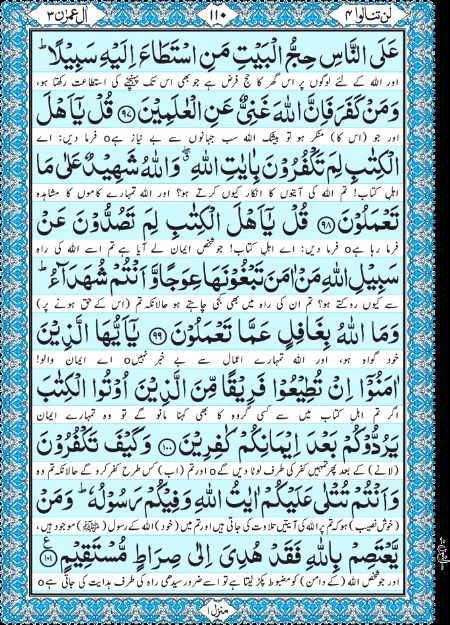 لن تنالوا ۴
۱۱۰
اٰل عمرٰن ۳
عَلَى النَّاسِ حِجُّ الْبَيْتِ مَنِ اسْتَطَاعَ اِلَيْهِ سَبِيْلًا ؕ
اور اللہ کے لئے لوگوں پر اس گھر کا حج فرض ہے جو بھی اس تک پہنچنے کی استطاعت رکھتا ہو،
وَمَنْ كَفَرَ فَاِنَّ اللّٰهَ غَنِيٌّ عَنِ الْعٰلَمِيْنَ ﴿۹۷﴾ قُلْ يٰۤاَهْلَ
اور جو (اس کا) منکر ہو تو بیشک اللہ سب جہانوں سے بے نیاز ہے o فرما دیں: اے
الْكِتٰبِ لِمَ تَكْفُرُوْنَ بِاٰيٰتِ اللّٰهِ ۖۗ وَاللّٰهُ شَهِيْدٌ عَلٰى مَا
اہلِ کتاب! تم اللہ کی آیتوں کا انکار کیوں کرتے ہو؟ اور اللہ تمہارے کاموں کا مشاہدہ
تَعْمَلُوْنَ ﴿۹۸﴾ قُلْ يٰۤاَهْلَ الْكِتٰبِ لِمَ تَصُدُّوْنَ عَنْ
فرما رہا ہے o فرما دیں: اے اہلِ کتاب! جو شخص ایمان لے آیا ہے تم اسے اللہ کی راہ
سَبِيْلِ اللّٰهِ مَنْ اٰمَنَ تَبْغُوْنَهَا عِوَجًا وَّ اَنْتُمْ شُهَدَآءُ ؕ
سے کیوں روکتے ہو؟ تم ان کی راہ میں بھی کجی چاہتے ہو حالانکہ تم (اس کے حق ہونے پر)
وَمَا اللّٰهُ بِغَافِلٍ عَمَّا تَعْمَلُوْنَ ﴿۹۹﴾ يٰۤاَيُّهَا الَّذِيْنَ
خود گواہ ہو، اور اللہ تمہارے اعمال سے بے خبر نہیں o اے ایمان والو!
اٰمَنُوْۤا اِنْ تُطِيْعُوْا فَرِيْقًا مِّنَ الَّذِيْنَ اُوْتُوا الْكِتٰبَ
اگر تم اہلِ کتاب میں سے کسی گروہ کا بھی کہنا مانو گے تو وہ تمہارے ایمان
يَرُدُّوْكُمْ بَعْدَ اِيْمَانِكُمْ كٰفِرِيْنَ ﴿۱۰۰﴾ وَكَيْفَ تَكْفُرُوْنَ
(لانے) کے بعد پھر تمہیں کفر کی طرف لوٹا دیں گے o اور تم (اب) کس طرح کفر کرو گے حالانکہ تم وہ
وَاَنْتُمْ تُتْلٰى عَلَيْكُمْ اٰيٰتُ اللّٰهِ وَفِيْكُمْ رَسُوْلُهٗ ؕ وَمَنْ
(خوش نصیب) ہو کہ تم پر اللہ کی آیتیں تلاوت کی جاتی ہیں اور تم میں (خود) اللہ کے رسول (ﷺ) موجود ہیں،
يَّعْتَصِمْ بِاللّٰهِ فَقَدْ هُدِيَ اِلٰى صِرَاطٍ مُّسْتَقِيْمٍ ﴿۱۰۱﴾ ع
اور جو شخص اللہ (کے دامن) کو مضبوط پکڑ لیتا ہے تو اسے ضرور سیدھی راہ کی طرف ہدایت کی جاتی ہے o
منزل ۱